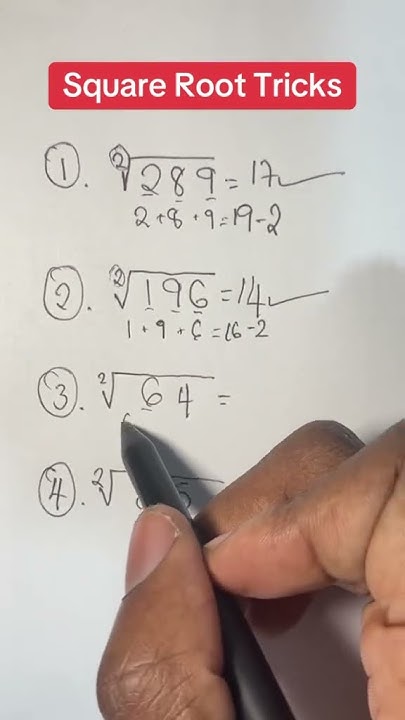 Square Root Tricks
①. ²√289 = 17
2 + 8 + 9 = 19 - 2
②. ²√196 = 14
1 + 9 + 6 = 16 - 2
③. ²√64 =
④. ²√ 5